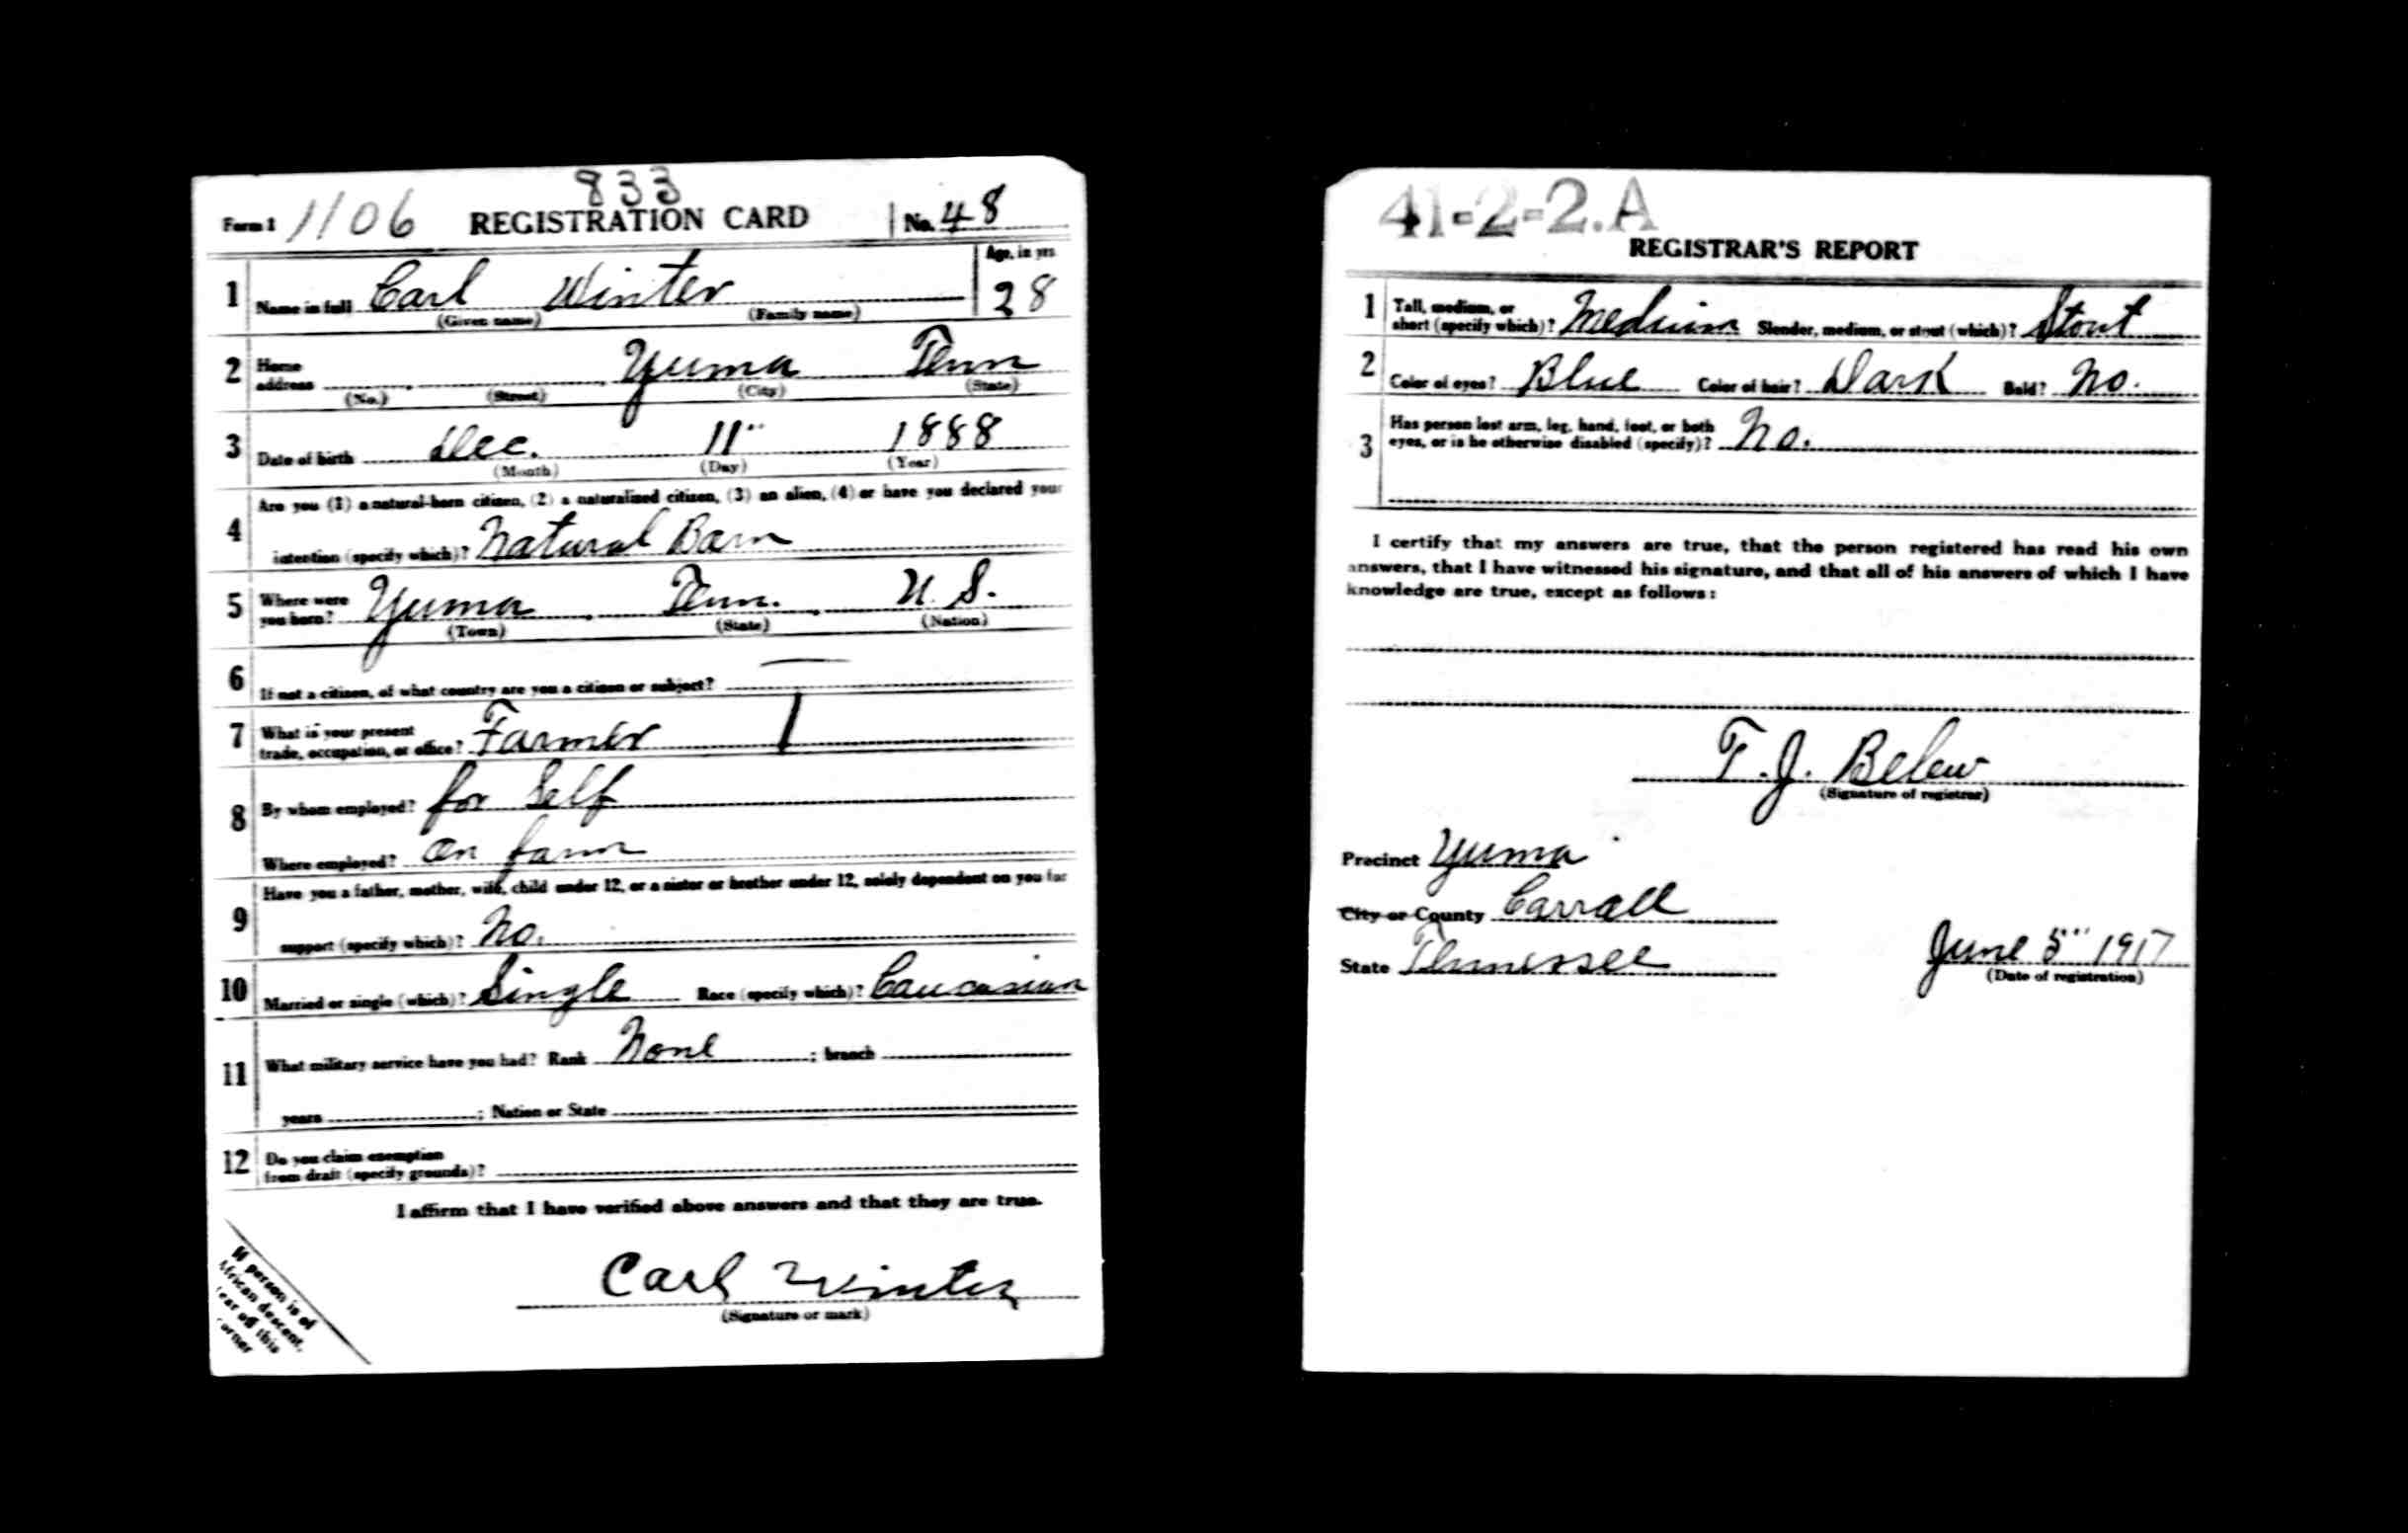 833
Form 1 1106 REGISTRATION CARD No. 48
Age, in yrs
1 Name in full Carl Winter 28
(Given name) (Family name)
2 Home address Yuma Tenn
(No.) (Street) (City) (State)
3 Date of birth Dec. 11" 1888
(Month) (Day) (Year)
Are you (1) a natural-born citizen, (2) a naturalized citizen, (3) an alien, (4) or have you declared your
4 intention (specify which)? Natural Born
5 Where were you born? Yuma Tenn. U.S.
(Town) (State) (Nation)
6 If not a citizen, of what country are you a citizen or subject?
7 What is your present
trade, occupation, or office? Farmer 1
8 By whom employed? for Self
Where employed? on farm
Have you a father, mother, wife, child under 12, or a sister or brother under 12, solely dependent on you for
9 support (specify which)? No.
10 Married or single (which)? Single Race (specify which)? Caucasian
11 What military service have you had? Rank None ; branch
years ; Nation or State
12 Do you claim exemption
from draft (specify grounds)?
I affirm that I have verified above answers and that they are true.
Carl Winter
(Signature or mark)
If person is of
African descent,
tear off this
corner
41-2-2.A
REGISTRAR'S REPORT
1 Tall, medium, or
short (specify which)? Medium Slender, medium, or stout (which)? Stout
2 Color of eyes? Blue Color of hair? Dark Bald? No.
3 Has person lost arm, leg, hand, foot, or both
eyes, or is he otherwise disabled (specify)? No.
I certify that my answers are true, that the person registered has read his own
answers, that I have witnessed his signature, and that all of his answers of which I have
knowledge are true, except as follows:
T. J. Belew
(Signature of registrar)
Precinct Yuma
City or County Carroll
State Tennessee June 5" 1917
(Date of registration)